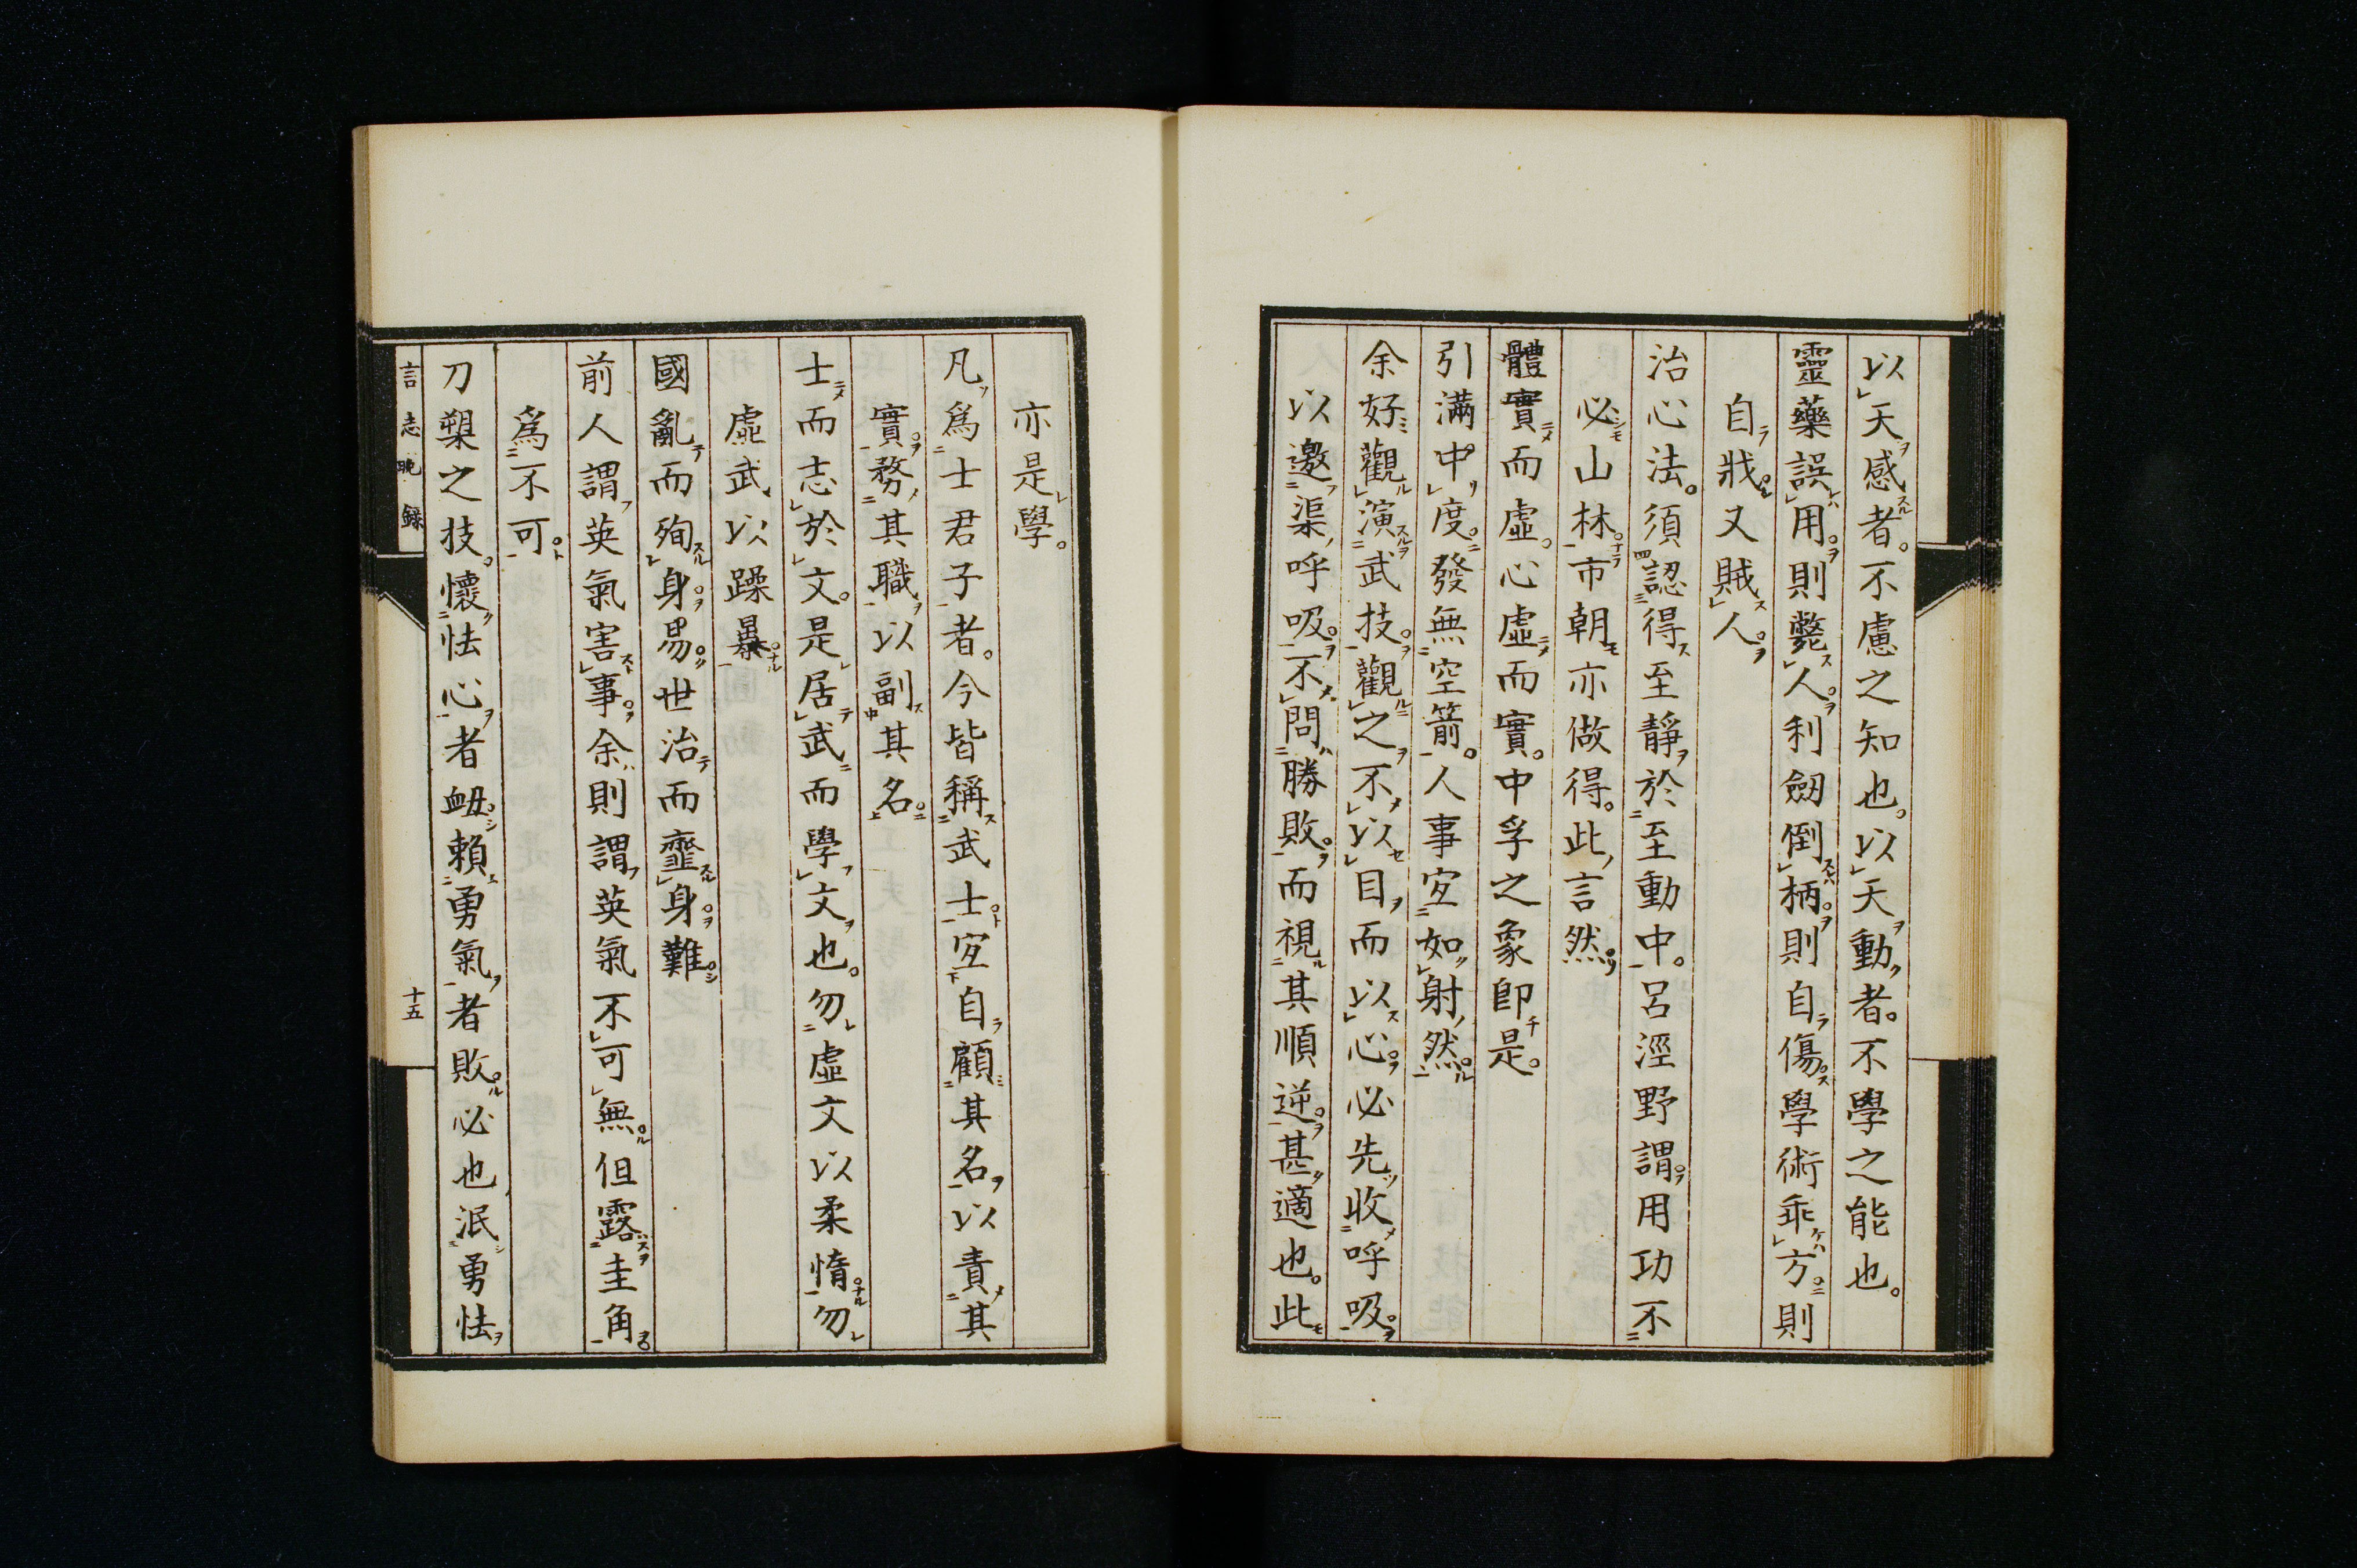 以天感者。不慮之知也。以天動者。不學之能也。
靈藥誤用。則斃人。利劒倒柄。則自傷。學術乖方。則
自戕。又賊人。
治心法。須認得至靜於至動中。呂涇野謂。用功不
必山林。市朝亦做得。此言然。
體實而虛。心虛而實。中孚之象卽是。
引滿中度。發無空箭。人事宐如射然。
余好觀演武技。觀之不以目而以心。必先收呼吸。
以邀渠呼吸。不問勝敗。而視其順逆。甚適也。此
亦是學。
凡爲士君子者。今皆稱武士。宐自顧其名以責其
實。務其職以副其名。
士而志於文。是居武而學文也。勿虛文以柔惰。勿
虛武以躁暴。
國亂而殉身。易。世治而虀身。難。
前人謂英氣害事。余則謂英氣不可無。但露圭角。
爲不可。
刀槊之技。懷怯心者衄。賴勇氣者敗。必也泯勇怯
言志晩錄
十五